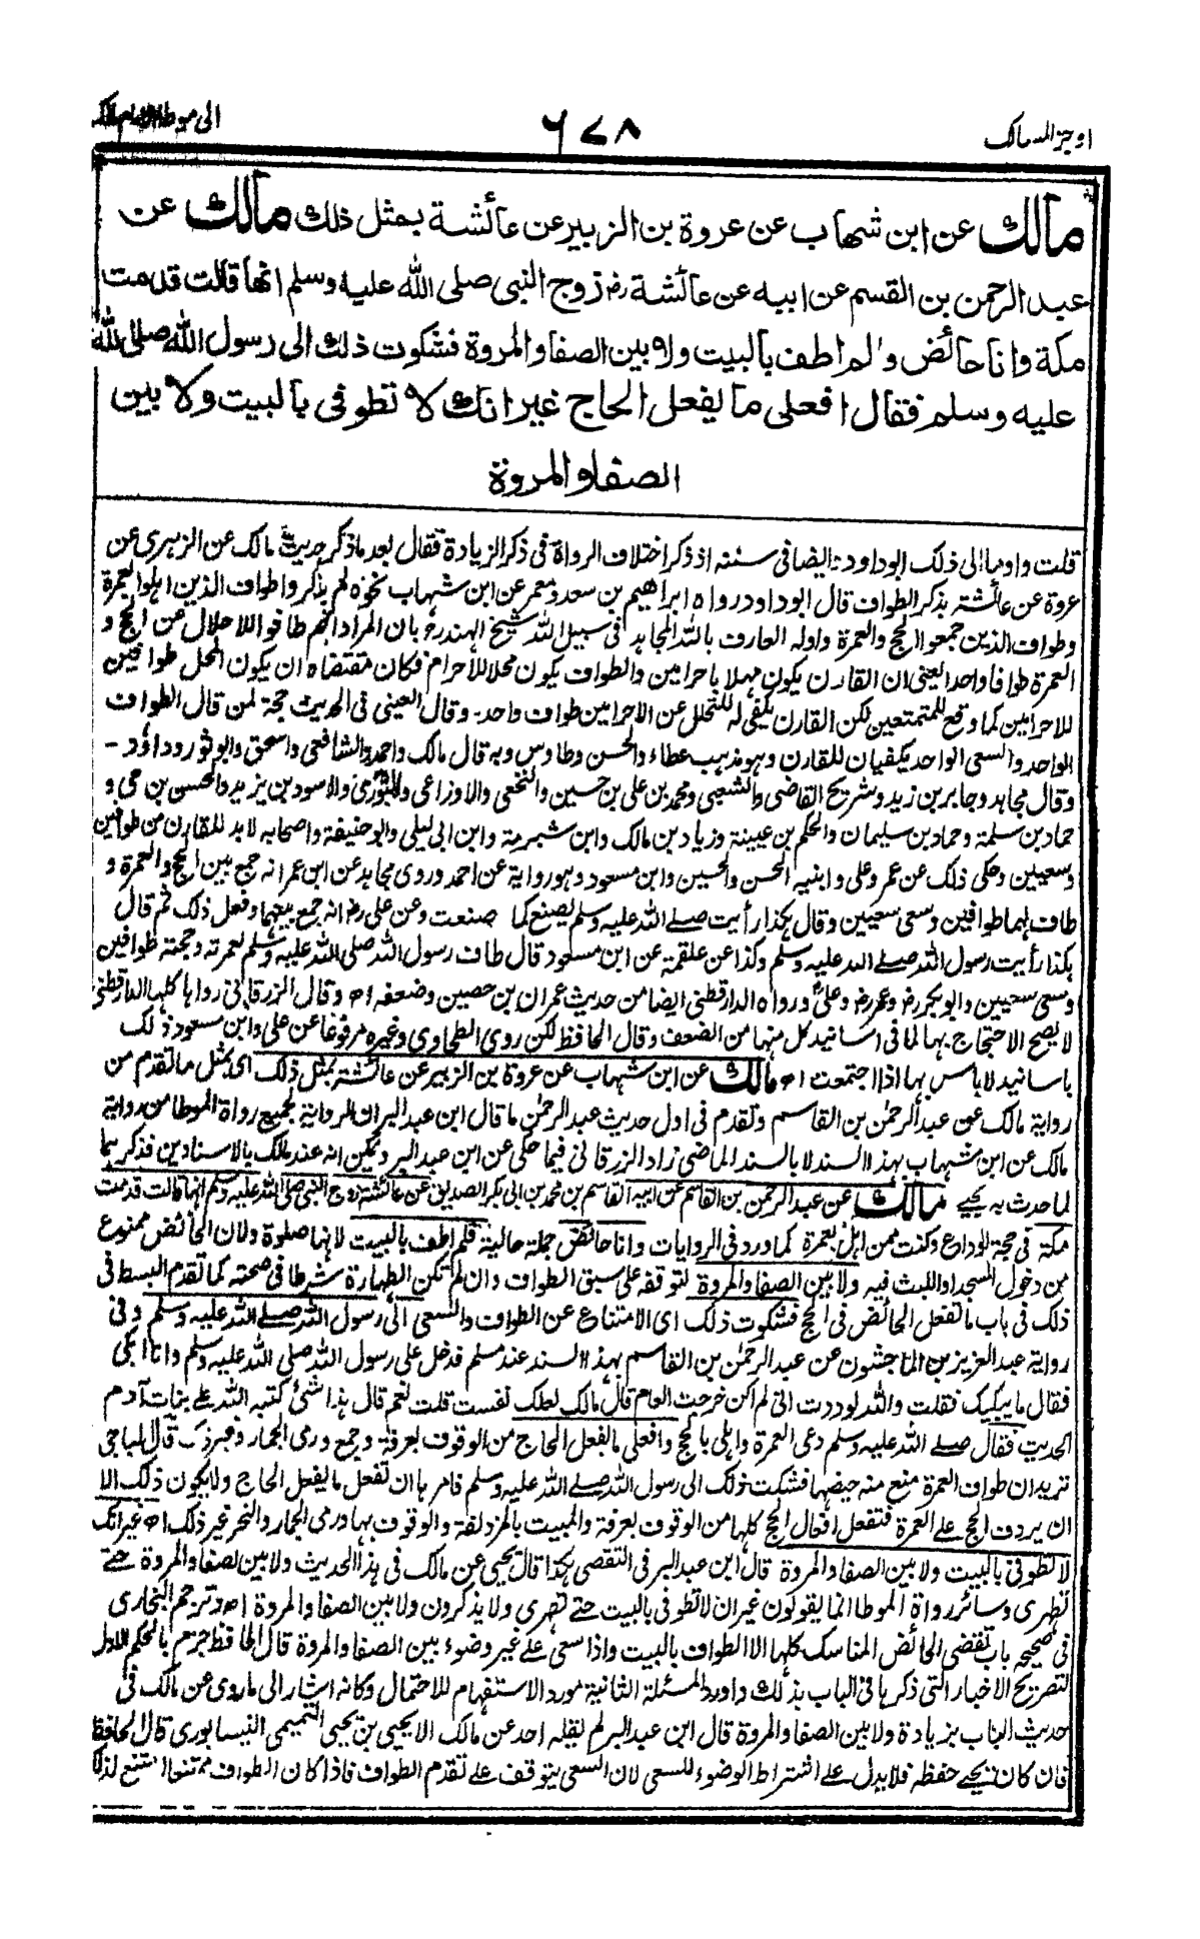 اوجز المسالك
٦٧٨
الى موطا الامام مالك
مالك عن ابن شهاب عن عروة بن الزبير عن عائشة بمثل ذلك مالك عن
عبد الرحمن بن القسم عن ابيه عن عائشة رضـ زوج النبى صلى الله عليه وسلم انها قالت قدمت
مكة وانا حائض ولم اطف بالبيت ولا بين الصفا والمروة فشكوت ذلك الى رسول الله صلى الله
عليه وسلم فقال افعلى ما يفعل الحاج غير انك لا تطوفى بالبيت ولا بين
الصفا والمروة
قلت واومأ الى ذلك ابو داود ايضا فى سننه اذ ذكر اختلاف الرواة فى ذكر الزيادة فقال بعد ما ذكر حديث مالك عن الزهرى عن
عروة عن عائشة بذكر الطواف قال ابو داود رواه ابراهيم بن سعد ومعمر عن ابن شهاب نحوه لم يذكروا طواف الذين اهلوا بالعمرة
وطواف الذين جمعوا الحج والعمرة واوله العارف بالله المجاهد فى سبيل الله شيخ الهند رح بان المراد انهم طافوا للاحلال عن الحج و
العمرة طوافا واحدا يعنى ان القارن يكون مهلا باحرامين والطواف يكون محللا للاحرام فكان مقتضاه ان يكون المحل طوافين
للاحرامين كما وقع للمتمتعين لكن القارن يكفى له للتحلل عن الاحرامين طواف واحد۔ وقال العينى فى الحديث حجة لمن قال الطواف
الواحد والسعى الواحد يكفيان للقارن وهو مذهب عطاء والحسن وطاوس وبه قال مالك واحمد والشافعى واسحق وابو ثور وداود۔
وقال مجاهد وجابر بن زيد وشريح القاضى والشعبى ومحمد بن على بن حسين والنخعى والاوزاعى والثورى والاسود بن يزيد والحسن بن حى و
حماد بن سلمة وحماد بن سليمان والحكم بن عيينة وزياد بن مالك وابن شبرمة وابن ابى ليلى وابو حنيفة واصحابه لا بد للقارن من طوافين
وسعيين وحكى ذلك عن عمر وعلى وابنيه الحسن والحسين وابن مسعود وهو رواية عن احمد وروى مجاهد عن ابن عمر انه جمع بين الحج والعمرة و
طاف لهما طوافين وسعى سعيين وقال هكذا رأيت صلے الله عليه وسلم يصنع كما صنعت وعن على رضـ انه جمع بينهما وفعل ذلك ثم قال
هكذا رأيت رسول الله صلے الله عليه وسلم وكذا عن علقمة عن ابن مسعود قال طاف رسول الله صلى الله عليه وسلم لعمرته وحجته طوافين
وسعى سعيين وابو بكر رضـ وعمر رضـ وعلى رضـ ورواه الدارقطنى ايضا من حديث عمران بن حصين وضعفه اھ وقال الزرقانى رواها كلها الدارقطنى
لا يصح الاحتجاج بها لما فى اسانيد كل منها من الضعف وقال الحافظ لكن روى الطحاوى وغيره مرفوعا عن على وابن مسعود ذلك
باسانيد لا باس بها اذا اجتمعت اھ مالك عن ابن شهاب عن عروة بن الزبير عن عائشة بمثل ذلك اى بمثل ما تقدم من
رواية مالك عن عبد الرحمٰن بن القاسم وتقدم فى اول حديث عبد الرحمٰن ما قال ابن عبد البر ان الرواية لجميع رواة الموطا من رواية
مالك عن ابن شهاب بهذا السند لا بالسند الماضى زاد الزرقانى فيما حكى عن ابن عبد البر ويمكن انه عند مالك بالاسنادين فذكر بهما
لما حدث به يحيے مالك عن عبد الرحمن بن القاسم عن ابيه القاسم بن محمد بن ابى بكر الصديق عن عائشة زوج النبى صلى الله عليه وسلم انها قالت قدمت
مكة فى حجة الوداع وكنت ممن اهل بعمرة كما ورد فى الروايات وانا حائض جملة حالية فلم اطف بالبيت لانها صلوة ولان الحائض ممنوع
من دخول المسجد او اللبث فيه ولا بين الصفا والمروة لتوقفه على سبق الطواف وان لم تكن الطهارة شرطا فى صحته كما تقدم البسط فى
ذلك فى باب ما تفعل الحائض فى الحج فشكوت ذلك اى الامتناع عن الطواف والسعى الى رسول الله صلے الله عليه وسلم وفى
رواية عبد العزيز بن الماجشون عن عبد الرحمٰن بن القاسم بهذا السند عند مسلم فدخل على رسول الله صلى الله عليه وسلم وانا ابكى
فقال ما يبكيك فقلت والله لوددت انى لم اكن خرجت العام قال مالك لعلك نفست قلت نعم قال هذا شئ كتبه الله علے بنات آدم
الحديث فقال صلے الله عليه وسلم دعى العمرة واهلى بالحج وافعلى ما يفعل الحاج من الوقوف بعرفة وجمع ورمى الجمار وغير ذلك قال الباجى
تريد ان طواف العمرة منع منه حيضها فشكت ذلك الى رسول الله صلے الله عليه وسلم فامرها ان تفعل ما يفعل الحاج ولا يكون ذلك الا
ان يردف الحج علے العمرة فتفعل افعال الحج كلها من الوقوف بعرفة والمبيت بالمزدلفة والوقوف بها ورمى الجمار والنحر غير ذلك اھ غير انك
لا تطوفى بالبيت ولا بين الصفا والمروة قال ابن عبد البر فى التقصى هكذا قال يحيى عن مالك فى هذا الحديث ولا بين الصفا والمروة حتے
تطهرى وسائر رواة الموطا انما يقولون غير ان لا تطوفى بالبيت حتے تطهرى ولا يذكرون ولا بين الصفا والمروة اھ وترجم البخارى
فى صحيحه باب تقضى الحائض المناسك كلها الا الطواف بالبيت واذا سعى علے غير وضوء بين الصفا والمروة قال الحافظ جزم بالحكم الاول
لتصريح الاخبار التى ذكرها فى الباب بذلك واورد المسئلة الثانية مورد الاستفهام للاحتمال وكانه اشار الى ما روى عن مالك فى
حديث الباب بزيادة ولا بين الصفا والمروة قال ابن عبد البر لم يقله احد عن مالك الا يحيى بن يحيى التميمى النيسابورى قال الحافظ
فان كان يحيے حفظه فلا يدل علے اشتراط الوضوء للسعى لان السعى يتوقف علے تقدم الطواف فاذا كان الطواف ممتنعا امتنع لذلك